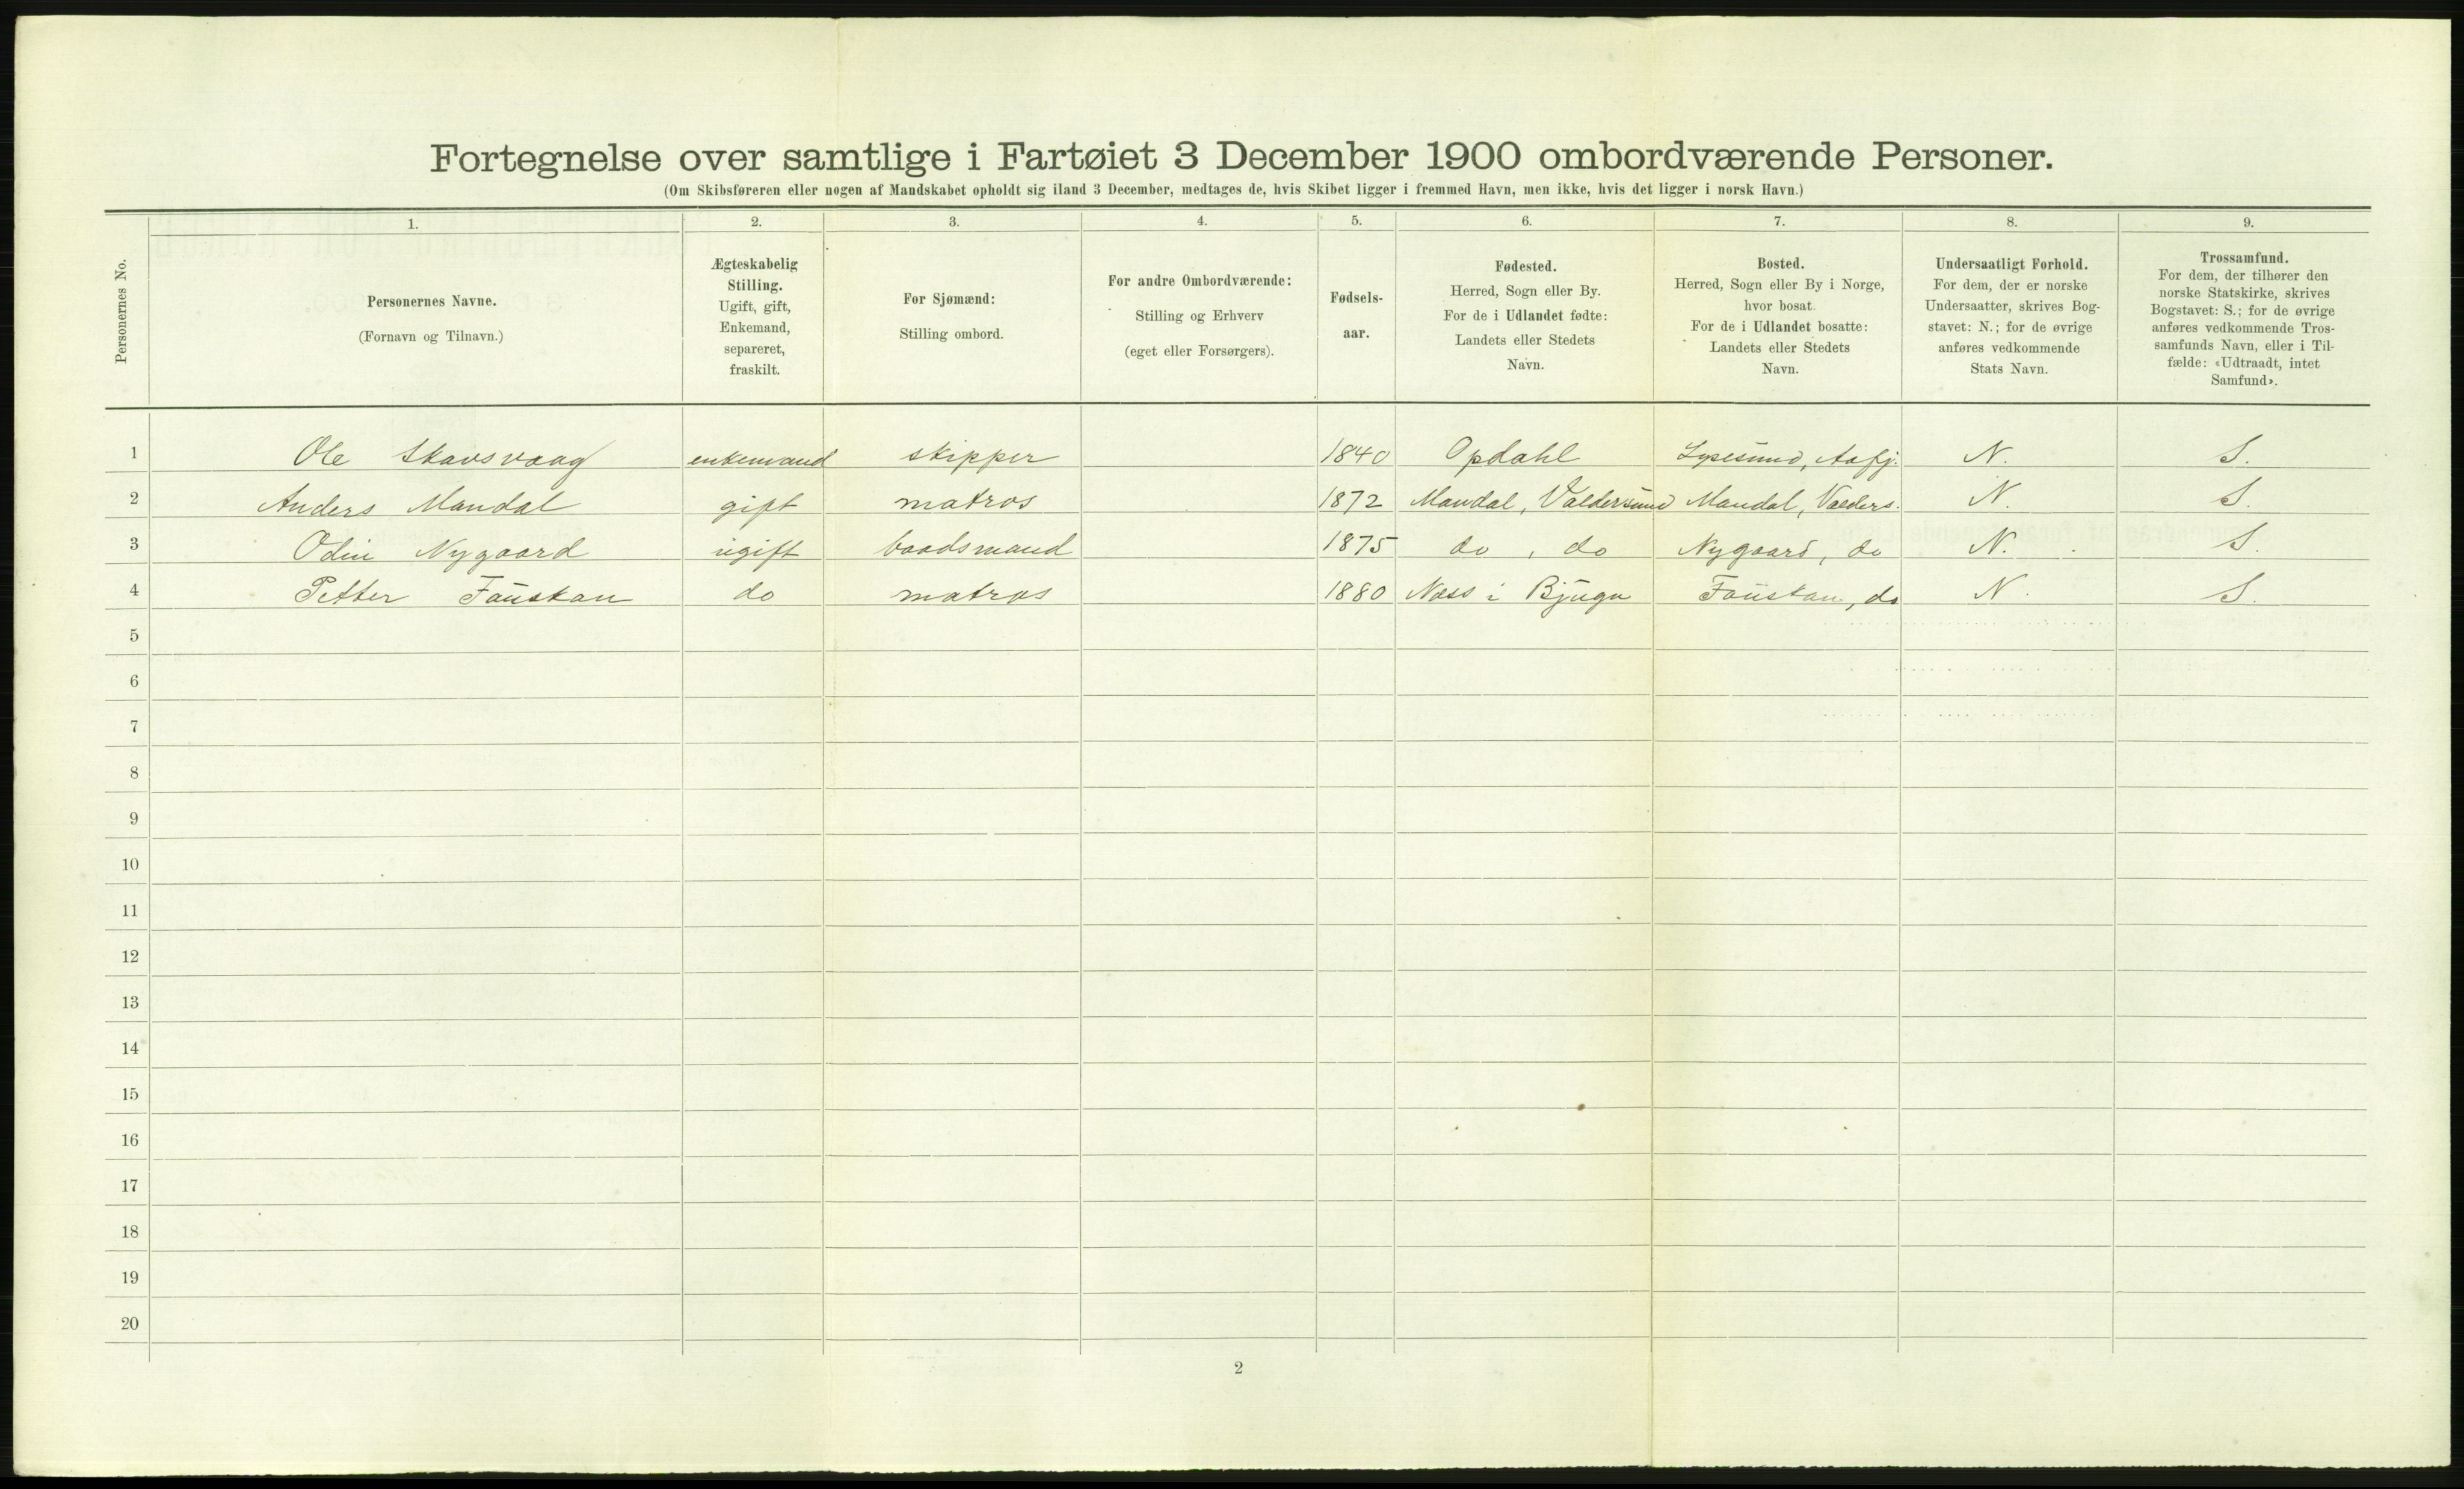 Fortegnelse over samtlige i Fartøiet 3 December 1900 ombordværende Personer.
(Om Skibsføreren eller nogen af Mandskabet opholdt sig iland 3 December, medtages de, hvis Skibet ligger i fremmed Havn, men ikke, hvis det ligger i norsk Havn.)
Personernes No.
1. 2. 3. 4. 5. 6. 7. 8. 9.
Personernes Navne.
(Fornavn og Tilnavn.)
Ægteskabelig
Stilling.
Ugift, gift,
Enkemand,
separeret,
fraskilt.
For Sjømænd:
Stilling ombord.
For andre Ombordværende:
Stilling og Erhverv
(eget eller Forsørgers).
Fødsels-
aar.
Fødested.
Herred, Sogn eller By.
For de i Udlandet fødte:
Landets eller Stedets
Navn.
Bosted.
Herred, Sogn eller By i Norge,
hvor bosat.
For de i Udlandet bosatte:
Landets eller Stedets
Navn.
Undersaatligt Forhold.
For dem, der er norske
Undersaatter, skrives Bog-
stavet: N.; for de øvrige
anføres vedkommende
Stats Navn.
Trossamfund.
For dem, der tilhører den
norske Statskirke, skrives
Bogstavet: S.; for de øvrige
anføres vedkommende Tros-
samfunds Navn, eller i Til-
fælde: «Udtraadt, intet
Samfund».
1 Ole Skavsvaag enkemand skipper 1840 Opdahl Lysesund, Aafj. N. S.
2 Anders Mandal gift matros 1872 Mandal, Valdersund Mandal, Valders. N. S.
3 Odin Nygaard ugift baadsmand 1875 do, do Nygaard, do N. S.
4 Petter Fauskan do matros 1880 Næss i Bjugn Fauskan, do N. S.
5
6
7
8
9
10
11
12
13
14
15
16
17
18
19
20
2